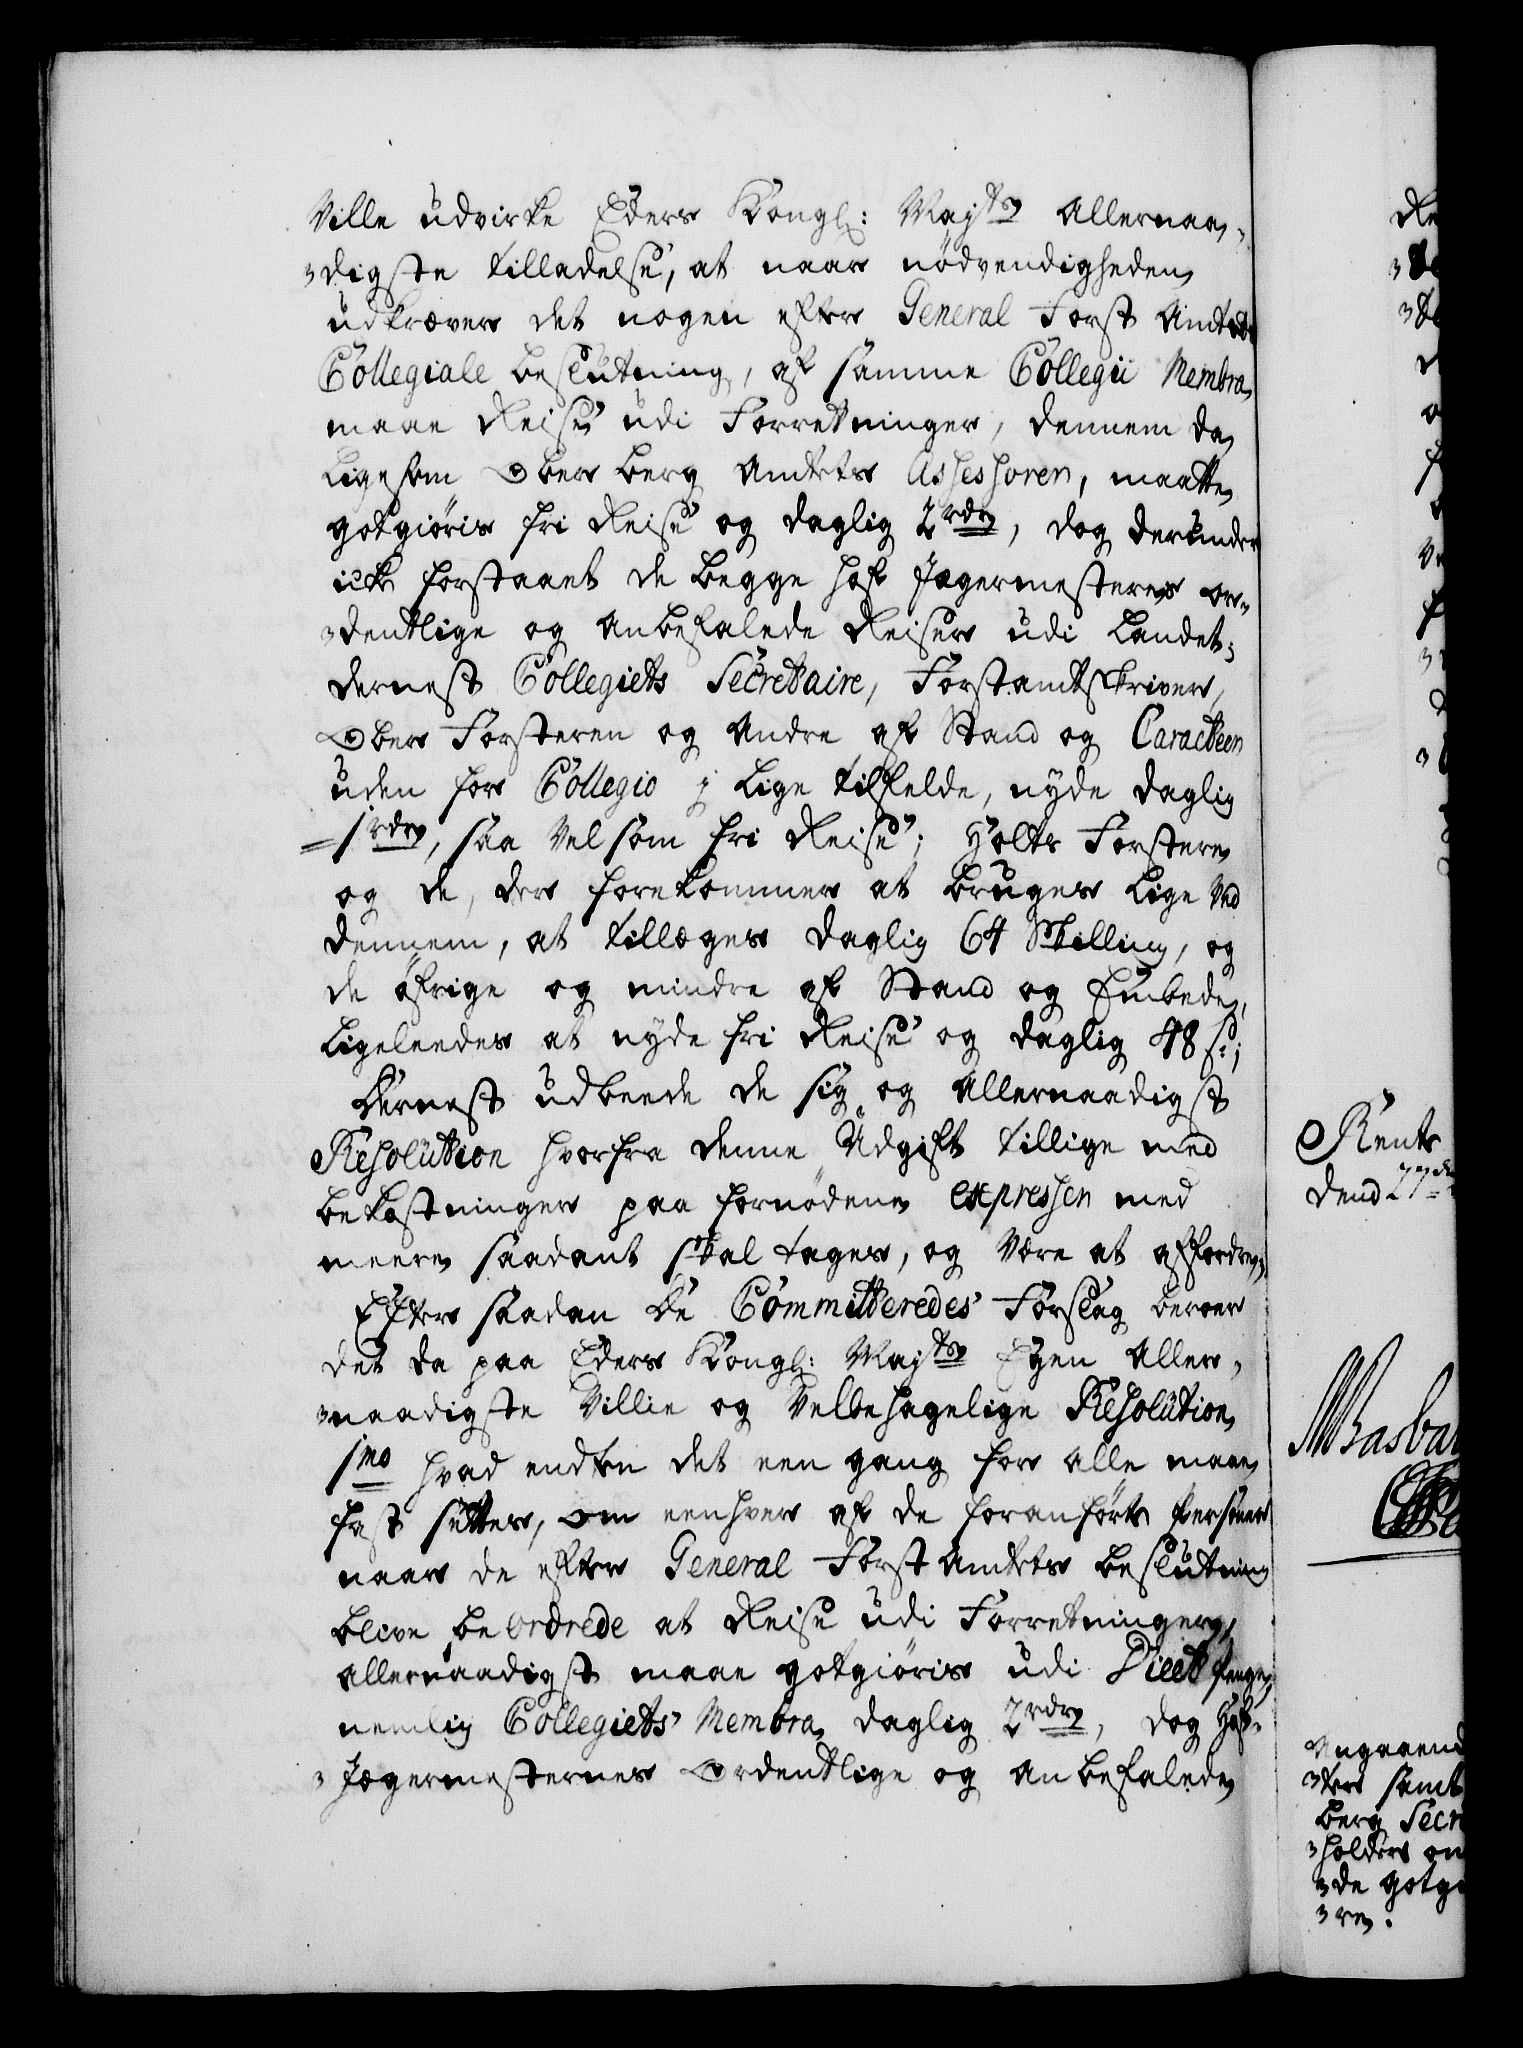 Ville udvirke Eders Kongl: Majts Allernaa-
-digste tilladelse, at naar nödvendigheden
udkræver det nogen efter General Forst Amtets
Collegiale beslutning, af samme Collegii Membra
maae Reise udi Forretninger, dennem da
ligesom Ober berg Amtets Assessoren, maatte
gotgiöris fri Reise og daglig 2 rdr, dog derunder
icke forstaaet de begge Hof Jægermesteres or-
-dentlige og Anbefalede Reiser udi Landet;
dernest Collegiets Secretaire, Forstamtskriver,
Ober Forsteren og Andre af Stand og Caracteer
uden for Collegio j lige tilfelde, nyde daglig
1 rdr, saa vel som fri Reise; Holts Forstere
og de, der forekommer at bruges lige ved
dennem, at tillæges daglig 64 Skilling, og
de öfrige og mindre af Stand og Embede,
ligeleedes at nyde fri Reise og daglig 48 s:;
Dernest udbeede de sig og Allernaadigst
Resolution hvorfra denne Udgift tillige med
bekostninger paa fornödene expressen med
meere saadant skal tages, og være at affordre;
Efter saadan De Committeredes Forslag beroer
det da paa Eders Kongl: Majts Egen Aller-
-naadigste Villie og Velbehagelige Resolution
1mo hvad enten det een gang for alle maae
fast settes, om eenhver af de foranförte Persohner
naar de efter General Forst Amtets beslutning
blive beordrede at Reise udi Forretninger,
allernaadigst maae gotgiöris udi Diæt penge,
nemlig Collegiets Membra daglig 2 rdr, dog Hof-
-Jægermesternes Ordentlige og Anbefalede
Rents
dend 27de
Angaaend
samt
berg Secr
-holders om
-de gotg